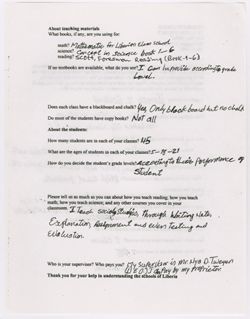 About teaching materials
What books, if any, are you using for:
math? Mathematic for Liberian Elem school
science? Concept in science book 1-6
reading? Scott, Foresman Reading (Book 1-6)
If no textbooks are available, what do you use? I can improvise according to grade
level.
Does each class have a blackboard and chalk? Yes, Only black board but no chalk
Do most of the students have copy books? Not all
About the students:
How many students are in each of your classes? 45
What are the ages of students in each of your classes? 5-18-21
How do you decide the student's grade levels? According to their performance of
student
Please tell us as much as you can about how you teach reading, how you teach
math, how you teach science, and any other courses you cover in your
classroom. I Teach social studies, Through Writing notes,
Explanation, Assignment and even Testing and
Evaluation
Who is your supervisor? Who pays you? My supervisor is Mr. Nya D. Twegan
pay by my proprietor
Thank you for your help in understanding the schools of Liberia